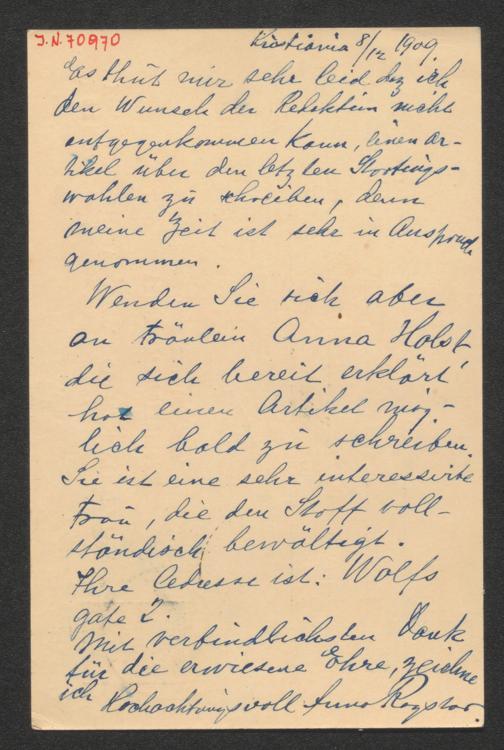 J.N. 70970
Kristiania 8/12 1909
Es thut mir sehr leid daz ich
den Wunsch der Redaktion nicht
entgegenkommen kann, einen Ar-
tikel über den letzten Stortings-
wahlen zu schreiben, denn
meine Zeit ist sehr in Anspruch
genommen.
Wenden Sie sich aber
an Fräulein Anna Holst,
die sich bereit erklärt
hat einen Artikel mög-
lich bald zu schreiben.
Sie ist eine sehr interessirte
Frau, die den Stoff voll-
ständisch bewältigt.
Ihre Adresse ist: Wolfs
gate 2.
Mit verbindlichsten Dank
für die erwiesene Ehre, zeichne
ich Hochachtungsvoll